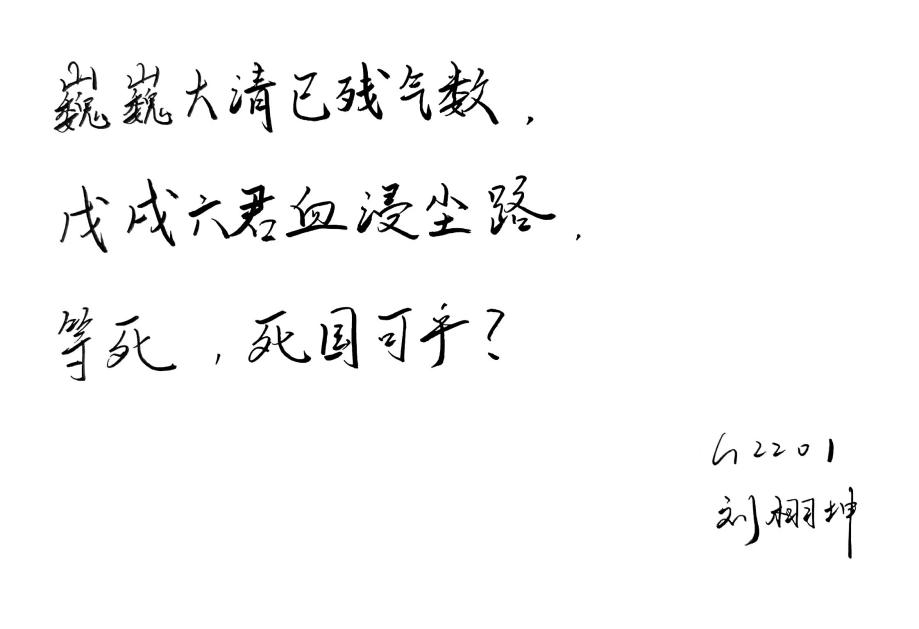 巍巍大清已残气数，
戊戌六君血浸尘路．
等死，死国可乎？
G2201
刘栩坤